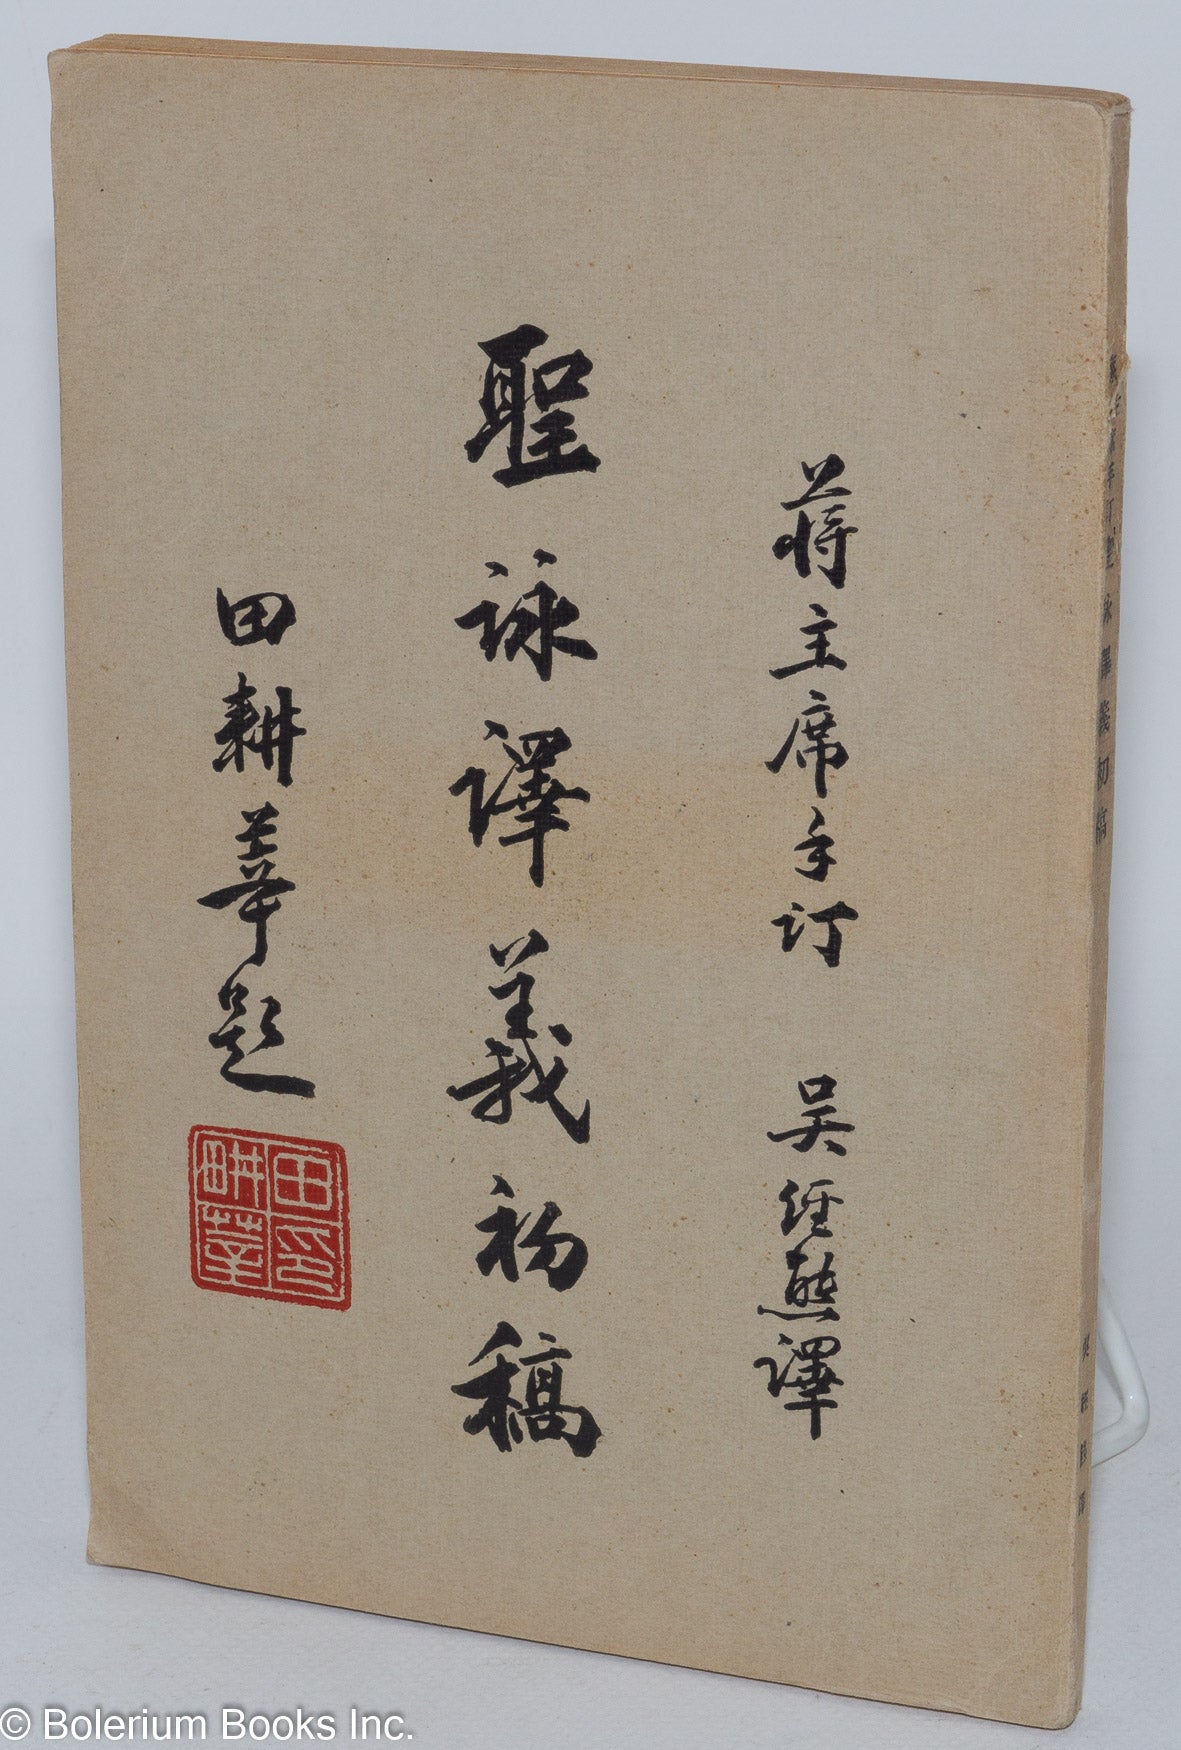 蔣主席手訂 吳經熊譯
聖詠譯義初稿
田耕莘題
田印
耕莘
蔣主席手訂聖詠譯義初稿
吳經熊譯
© Bolerium Books Inc.